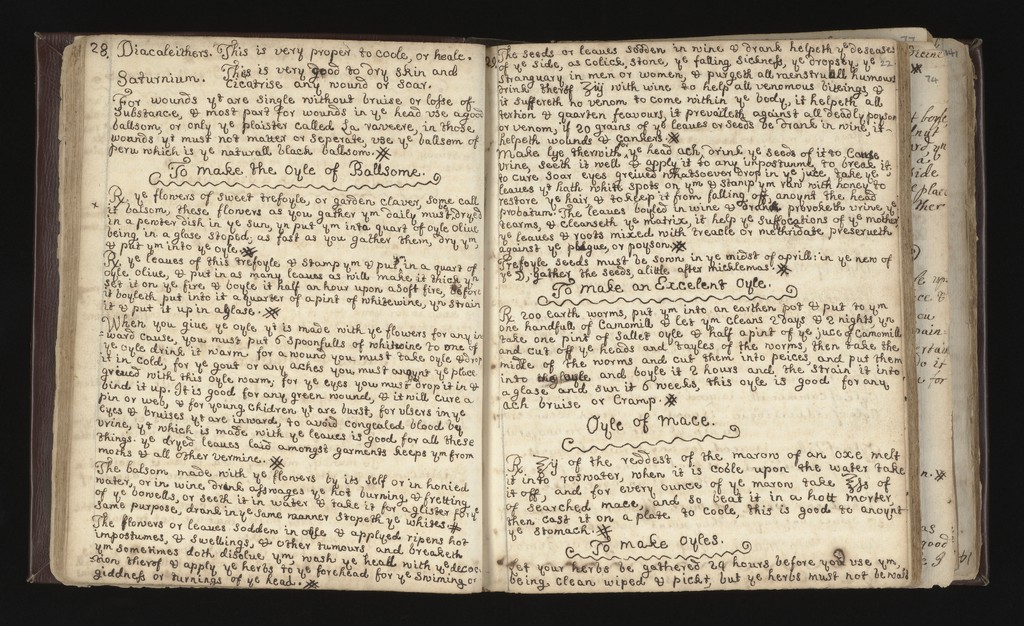 28. Diacaleithers. This is very proper to coole, or heale.
Saturnium. This is very good to dry skin and
cicatrise any wound or soar.
For wounds yt are single without bruise or losse of
substance, & most part for wounds in ye head vse a good
ballsom, or only ye plaister called La raveere, in those
wounds yt must not matter or seperate, vse ye ballsom of
peru which is ye naturall black ballsom.
To make the Oyle of Ballsome.
℞ ye flowers of sweet trefoyle, or garden claver, some call
it balsom, these flowers as you gather ym daily must dryed
in a pewter dish in ye sun, yn put ym into quart of oyle olive
being in a glase stoped, as fast as you gather them, dry, ym,
& put ym into ye oyle.
℞ ye leaves of this trefoyle & stamp ym & put in a quart of
oyle olive, & put in as many leaues as will make it thick yn
set it on ye fire, & boyle it half an hour upon a soft fire, before
it boyleth put into it a quarter of a pint of whitewine, yn strain
it & put it up in a glase.
When you giue ye oyle yt is made with ye flowers for any in
ward cause, you must put 6 spoonfulls of whitwine to one of
ye oyle drink it warm for a wound you must take oyle & drop
it in cold, for ye gout or any aches you must anoynt ye place
greiued with this oyle warm, for ye eyes you must drop it in &
bind it up. It is good for any green wound, & it will cure a
pin or web, & for young chidren yt are burst, for vlsers in ye
eyes & bruises yt are inward, to avoid congealed blood by
vrine, yt which is made with ye leaues is good for all these
things. ye dryed leaues laid amongst garments keeps ym from
moths & all other vermine.
The balsom made with ye flowers by its self or in honied
water, or in wine drank asswages ye hot burning, & fretting
of ye bowells, or seeth it in water & take it for a glister for ye
same purpose, drank in ye same manner stopeth ye whites
The flowers or leaues sodden in oyle & applyed ripens hot
impostumes, & swellings, & other tumours and breaketh
ym sometimes doth disolue ym wash ye head with ye decoc-
tion therof & apply ye herbs to ye forehead for ye swiming or
giddness or turnings of ye head.
The seeds or leaues sodden in wine & drank helpeth ye deseases
of ye side, as colick, stone, ye falling sickness, ye dropsey, ye
stranguary in men or women, & purgeth all menstruall humours
drink therof ʒij with wine to help all venomous biteings, &
it suffereth no venom to come within ye body, it helpeth all
tertion & quarten feavours, it prevaileth against all deadly poyson
or venom, if 20 grains of ye leaues or seeds be drank in wine, it
helpeth wounds & cankers
Make lye therwith, ye head ach, drink ye seeds of it to Cause
vrine, seeth it well & apply it to any impostumne, to break it
to cure soar eyes greiued whatsoever drop in ye juce, take ye
leaues yt hath white spots on ym & stamp ym raw with honey to
restore ye hair & to keep it from falling off, anoynt the head
probatum. The leaues boyled in wine & drank provoketh vrine, ye
tearms, & cleanseth ye matrix, it help ye suffocations of ye mother
ye leaues & roots mixed with treacle or methridate preserueth
against ye plague, or poyson
Trefoyle seeds must be sown in ye midst of aprill: in ye new of
ye ☽, gather the seeds, a litle after micklemas.
To make an Excelent Oyle.
℞ 200 earth worms, put ym into an earthen pot & put to ym
one handfull of Camomill & let ym cleans 2 days & 2 nights yn
take one pint of sallet oyle & half a pint of ye juce of Camomill
and cut off ye heads and tayles of the worms, then take the
midle of the worms and cut them into peices, and put them
into and boyle it 2 hours and, the strain it into
a glase and sun it 6 weeks, this oyle is good for any
ach bruise or Cramp.
Oyle of Mace.
℞ ʒij of the reddest of the marow of an oxe melt
it into roswater, when it is coole upon the water take
it off, and for every ounce of ye marow take ʒss of
of searched mace, and so beat it in a hott morter,
then cast it on a plate to coole, this is good to anoynt
ye stomach.
To make Oyles.
Let your herbs be gathered 24 hours before you vse ym,
being clean wiped & pickt, but ye herbs must not be